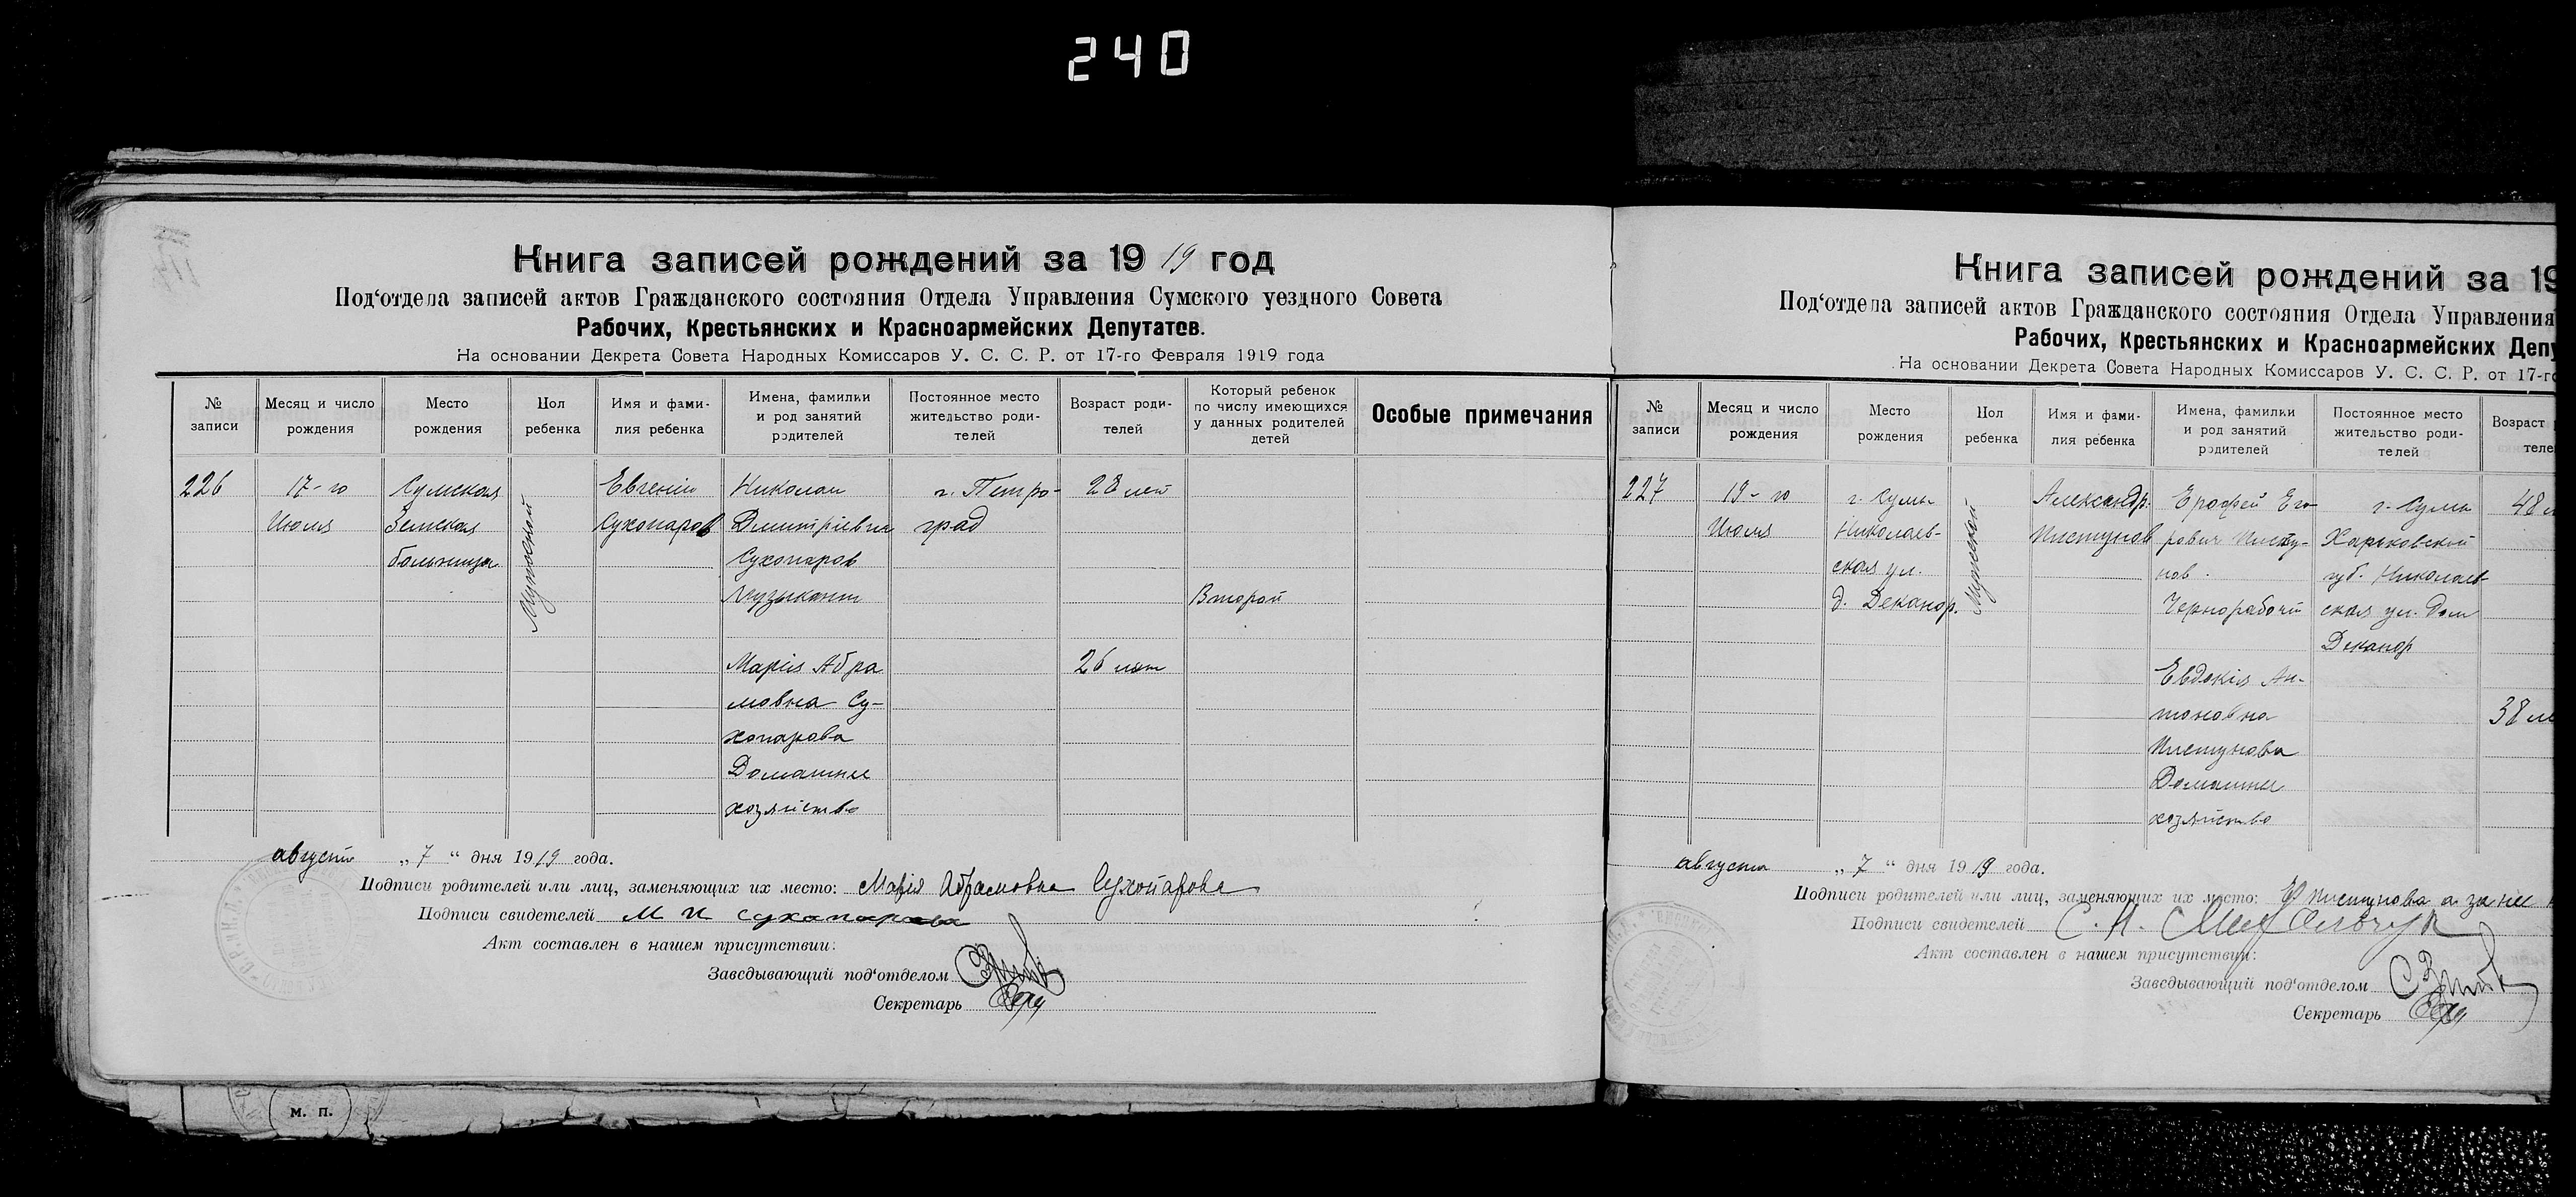 240
Книга записей рождений за 1919 год
Под‘отдела записей актов Гражданского состояния Отдела Управления Сумского уездного Совета
Рабочих, Крестьянских и Красноармейских Депутатов.
На основании Декрета Совета Народных Комиссаров У. С. С. Р. от 17-го Февраля 1919 года
№ записи
Месяц и число рождения
Место рождения
Пол ребенка
Имя и фами-
лия ребенка
Имена, фамилии
и род занятий
родителей
Постоянное место
жительство роди-
телей
Возраст роди-
телей
Который ребенок
по числу имеющихся
у данных родителей
детей
Особые примечания
226
17-го
Июля
Сумская
Земская
больница
Мужской
Евгений
Сухопаров
Николай
Дмитріевич
Сухопаров
Музыкант
Марія Абра
мовна Су-
хопарова
Домашнее
хозяйство
г. Петро-
град
28 лет
26 лет
Второй
августа „ 7 “ дня 1919 года.
Подписи родителей или лиц, заменяющих их место: Марія Абрамовна Сухопарова
Подписи свидетелей М И Сухопарова
Акт составлен в нашем присутствии:
Заведывающий под‘отделом
Секретарь
м. п.
Книга записей рождений за 19
Под‘отдела записей актов Гражданского состояния Отдела Управления
Рабочих, Крестьянских и Красноармейских Депу
На основании Декрета Совета Народных Комиссаров У. С. С. Р. от 17-го
№ записи
Месяц и число рождения
Место рождения
Пол ребенка
Имя и фами-
лия ребенка
Имена, фамилии
и род занятий
родителей
Постоянное место
жительство роди-
телей
Возраст
теле
227
19-го
Июля
г. Сумы
Николаев-
ская ул.
д. Деканор.
Мужской
Александр.
Пистунов
Ерофей Его
ровичПисту-
нов.
Чернорабочий
Евдокія Ан-
тоновна
Пистунова
Домашнее
хозяйство
г. Сумы
Харьковской
губ. Николаев
ская ул. дом
Деканор
48 л
38 ле
августа „ 7 “ дня 1919 года.
Подписи родителей или лиц, заменяющих их место: Е Пистунова а за нее
Подписи свидетелей С. Н.
Акт составлен в нашем присутствии:
Заведывающий под‘отделом
Секретарь